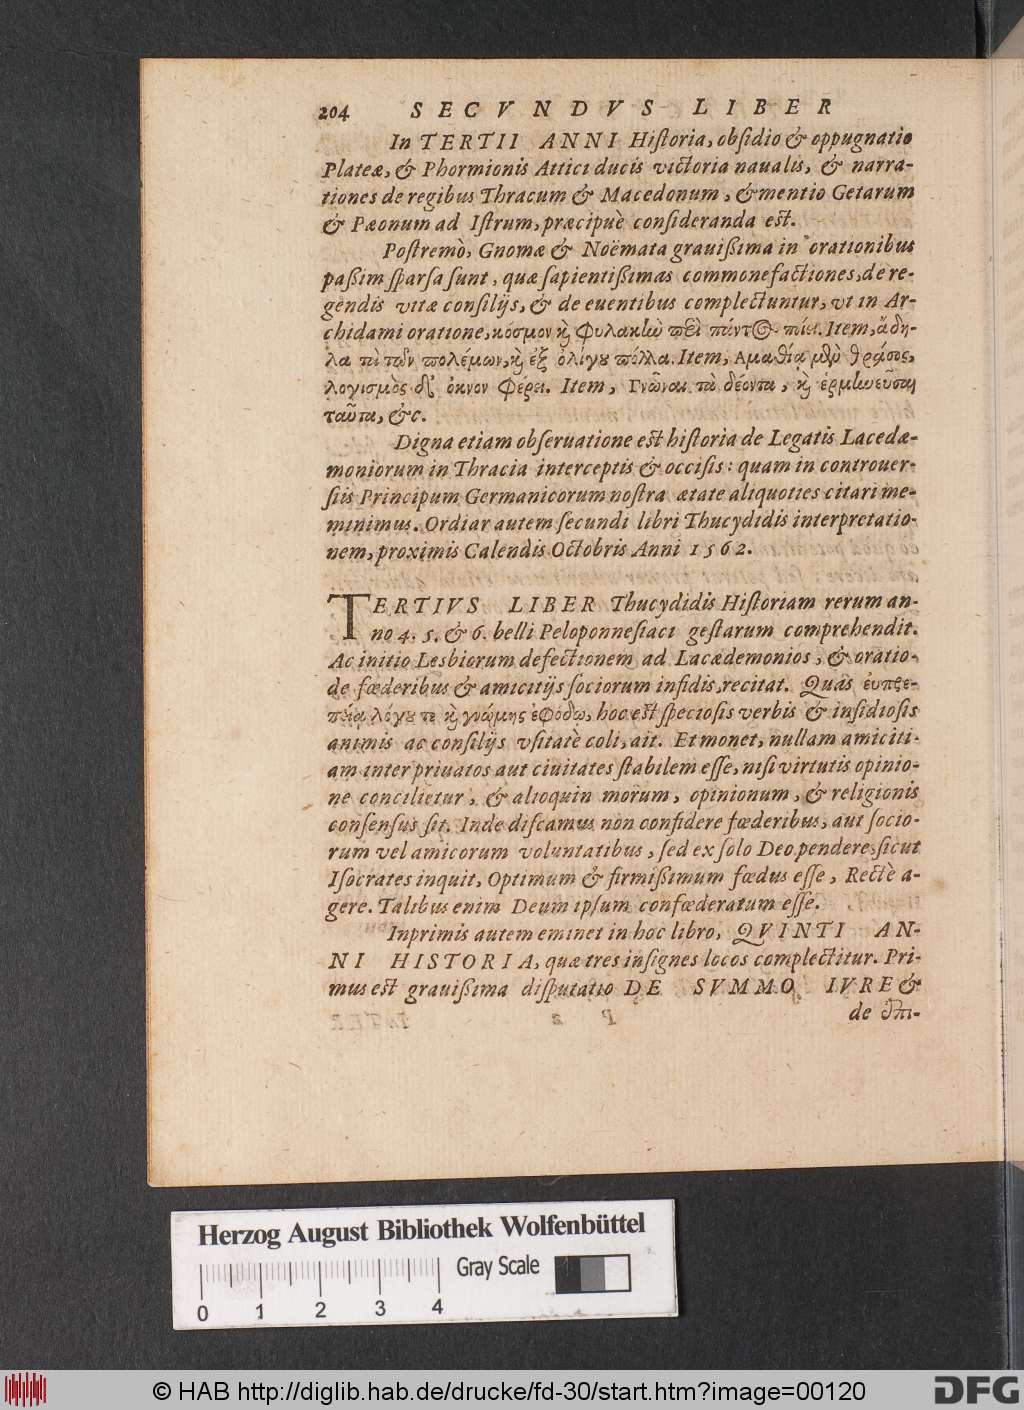 204 SECVNDVS LIBER
In TERTII ANNI Historia, obsidio & oppugnatio
Plateæ, & Phormionis Attici ducis victoria naualis, & narra-
tiones de regibus Thracum & Macedonum, & mentio Getarum
& Pæonum ad Istrum, præcipuè consideranda est.
Postremò, Gnomæ & Noëmata grauißima in orationibus
paßim sparsa sunt, quæ sapientißimas commonefactiones, de re-
gendis vitæ consilijs, & de euentibus complectuntur, vt in Ar-
chidami oratione, κόσμον καὶ φυλακὴν παντὸς Item, ἄδη-
λα τὰ τῶν πολέμων, καὶ ἐξ ὀλίγου πολλα. Item, Αμαθία μὲν θράσος,
λογισμὸς δ' ὀκνον φέρει. Item, Γνῶναι τὰ δέοντα, καὶ ἑρμηνεῦσαι
ταῦτα, &c.
Digna etiam obseruatione est historia de Legatis Lacedæ-
moniorum in Thracia interceptis & occisis: quam in controuer-
sijs Principum Germanicorum nostra ætate aliquoties citari me-
minimus. Ordiar autem secundi libri Thucydidis interpretatio-
nem, proximis Calendis Octobris Anni 1562.
TERTIVS LIBER Thucydidis Historiam rerum an-
no 4. 5. & 6. belli Peloponnesiaci gestarum comprehendit.
Ac initio Lesbiorum defectionem ad Lacædemonios, & oratio-
de fœderibus & amicitijs sociorum infidis, recitat. Quas εὐπρε-
πείᾳ λόγου τε καὶ γνώμης ἐφόδῳ, hoc est speciosis verbis & insidiosis
animis ac consilijs vsitatè coli, ait. Et monet, nullam amiciti-
am inter priuatos aut ciuitates stabilem esse, nisi virtutis opinio-
ne concilietur, & alioquin morum, opinionum, & religionis
consensus sit. Inde discamus non confidere fœderibus, aut socio-
rum vel amicorum voluntatibus, sed ex solo Deo pendere, sicut
Isocrates inquit, Optimum & firmißimum fœdus esse, Rectè a-
gere. Talibus enim Deum ipsum confœderatum esse.
Inprimis autem eminet in hoc libro, QVINTI AN-
NI HISTORIA, quæ tres insignes locos complectitur. Pri-
mus est grauißima disputatio DE SVMMO IVRE &
de ἐπι-
Herzog August Bibliothek Wolfenbüttel
Gray Scale
0 1 2 3 4
© HAB http://diglib.hab.de/drucke/fd-30/start.htm?image=00120
DFG